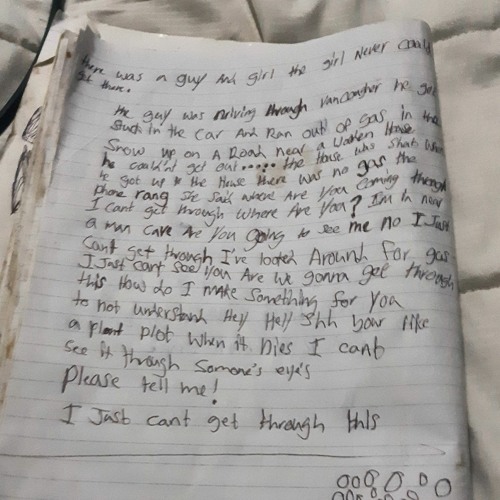 there was a guy And girl the girl Never could
get there.
the guy was Driving through Vancougher he got
stuck in the car And Ran out of gas in the
Snow up on A Road near a Wooden House
he couldn't get out..... the House was shut when
he got up to the House there was no gas the
phone rang She said where Are you coming through
I cant get through Where Are you? I'm in now
a man cave Are you going to see me no I Just
Cant get through I've looked Around for gas
I Just cant See you Are we gonna get through
this How do I make Something for you
to not understand Hey Hey Shh your like
a plant plot when it Dies I cant
See it through Somone's eye's
Please tell me!
I Just cant get through this